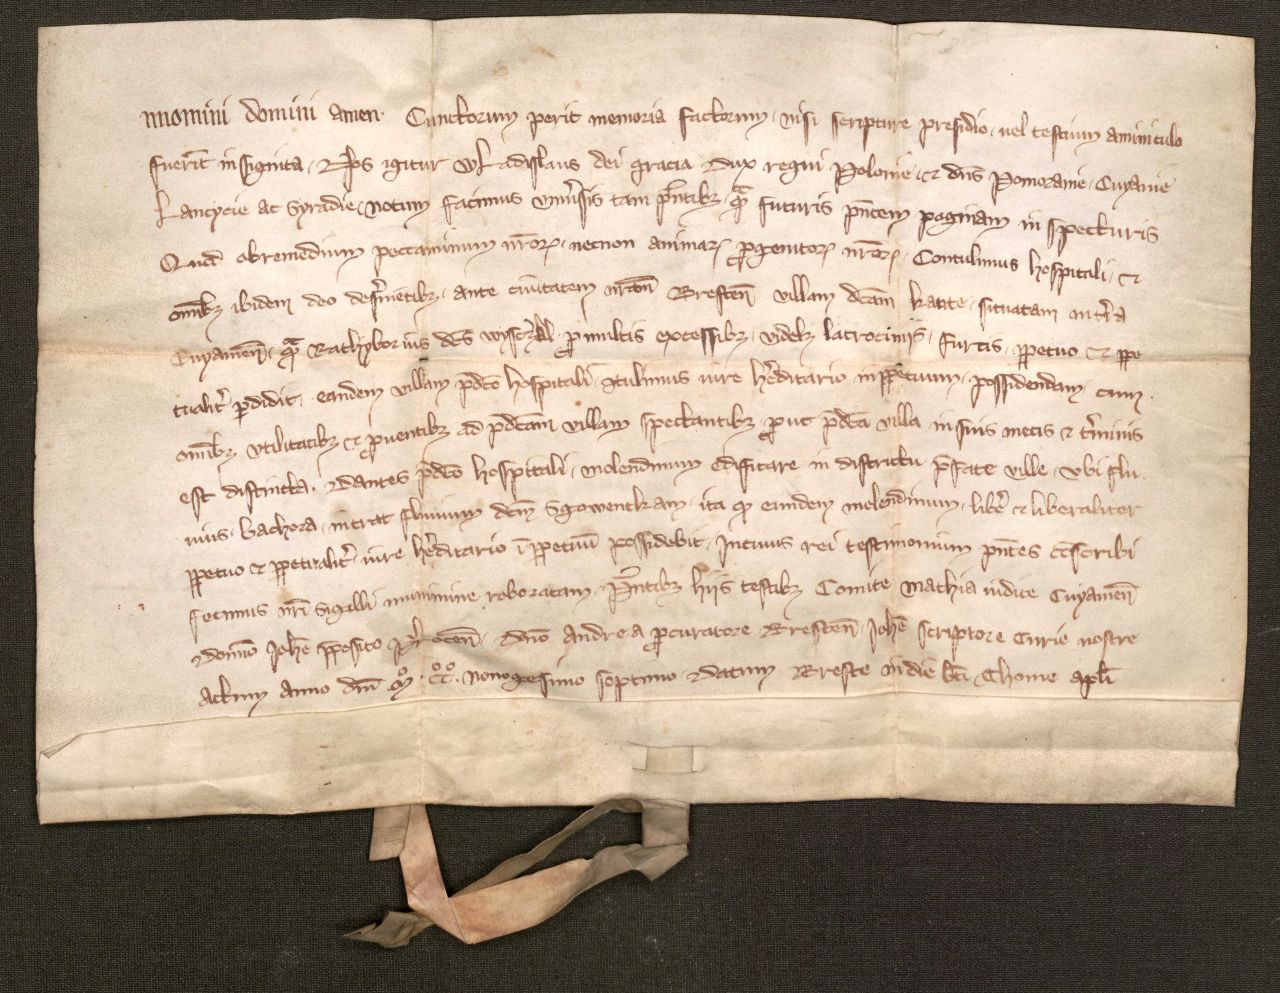 nnomini domini amen. Cunctorum perit memoria factorum, nisi scripture presidio, uel testium aminiculo
fuerīt insignita, Nos igitur Wladislaus dei gracia Dux regni Polonie, et dn̄s Pomoranie, Cuyauie
Lancycie ac Syradie, notum facimus vniu̾sis tam p̄ntibꝫ, qm̄ futuris p̄ntem paginam inspecturis
Quod obremedium peccaminum nr̄orꝝ, necnon animarꝝ ꝓgenitorꝝ nr̄orꝝ, Contulimus hospitali, et
om̄ibꝫ ibidem deo des̾uientibꝫ, ante ciuitatem nr̄am Bresten̄ villam dc̄am situatam in tr̄a
Cuyauien̄, qm̄ Rathyborius dc̄s ꝓ multis excessibꝫ, videlꝫ latrocinijs, furtis, ꝑpetuo et ꝑpe
tualit̾ ꝑdidit, eandem villam p̄dc̄o hospitali, ꝯtulimus iure h̾editario inꝑpetuum, possidendam, cum
om̄ibꝫ vtilitatibꝫ et ꝓuentibꝫ ad p̄dc̄am villam spectantibꝫ ꝓut p̄dc̄a villa in suis metis et t̾minis
est distincta. Dantes p̄dc̄o hospitali, molendinum edifficare in districtu p̄fate ville, vbi flu
uius, bachora, intrat fluuium dc̄m Sgowentkam, ita ꝙ eundem molendinum, lib̾e et liberaliter
ꝑpetuo et ꝑpetualit̾, iure h̾editario īꝑpetuū possidebit, Incuius rei testimonium p̄ntes cōscribi
fecimus nr̄i sigilli munimine roboratam, P̄ntibꝫ hijs testibꝫ Comite Mathia iudice Cuyauien̄
Domino Joh̄e p̄posito dn̄o Andrea ꝓcuratore Bresten̄, Joh̄e scriptore Curie nostre
Actum Anno dn̄i Mͦ. CCͦ. nonogesimo septimo. Datum Breste in die bt̄i Thome apl̄i